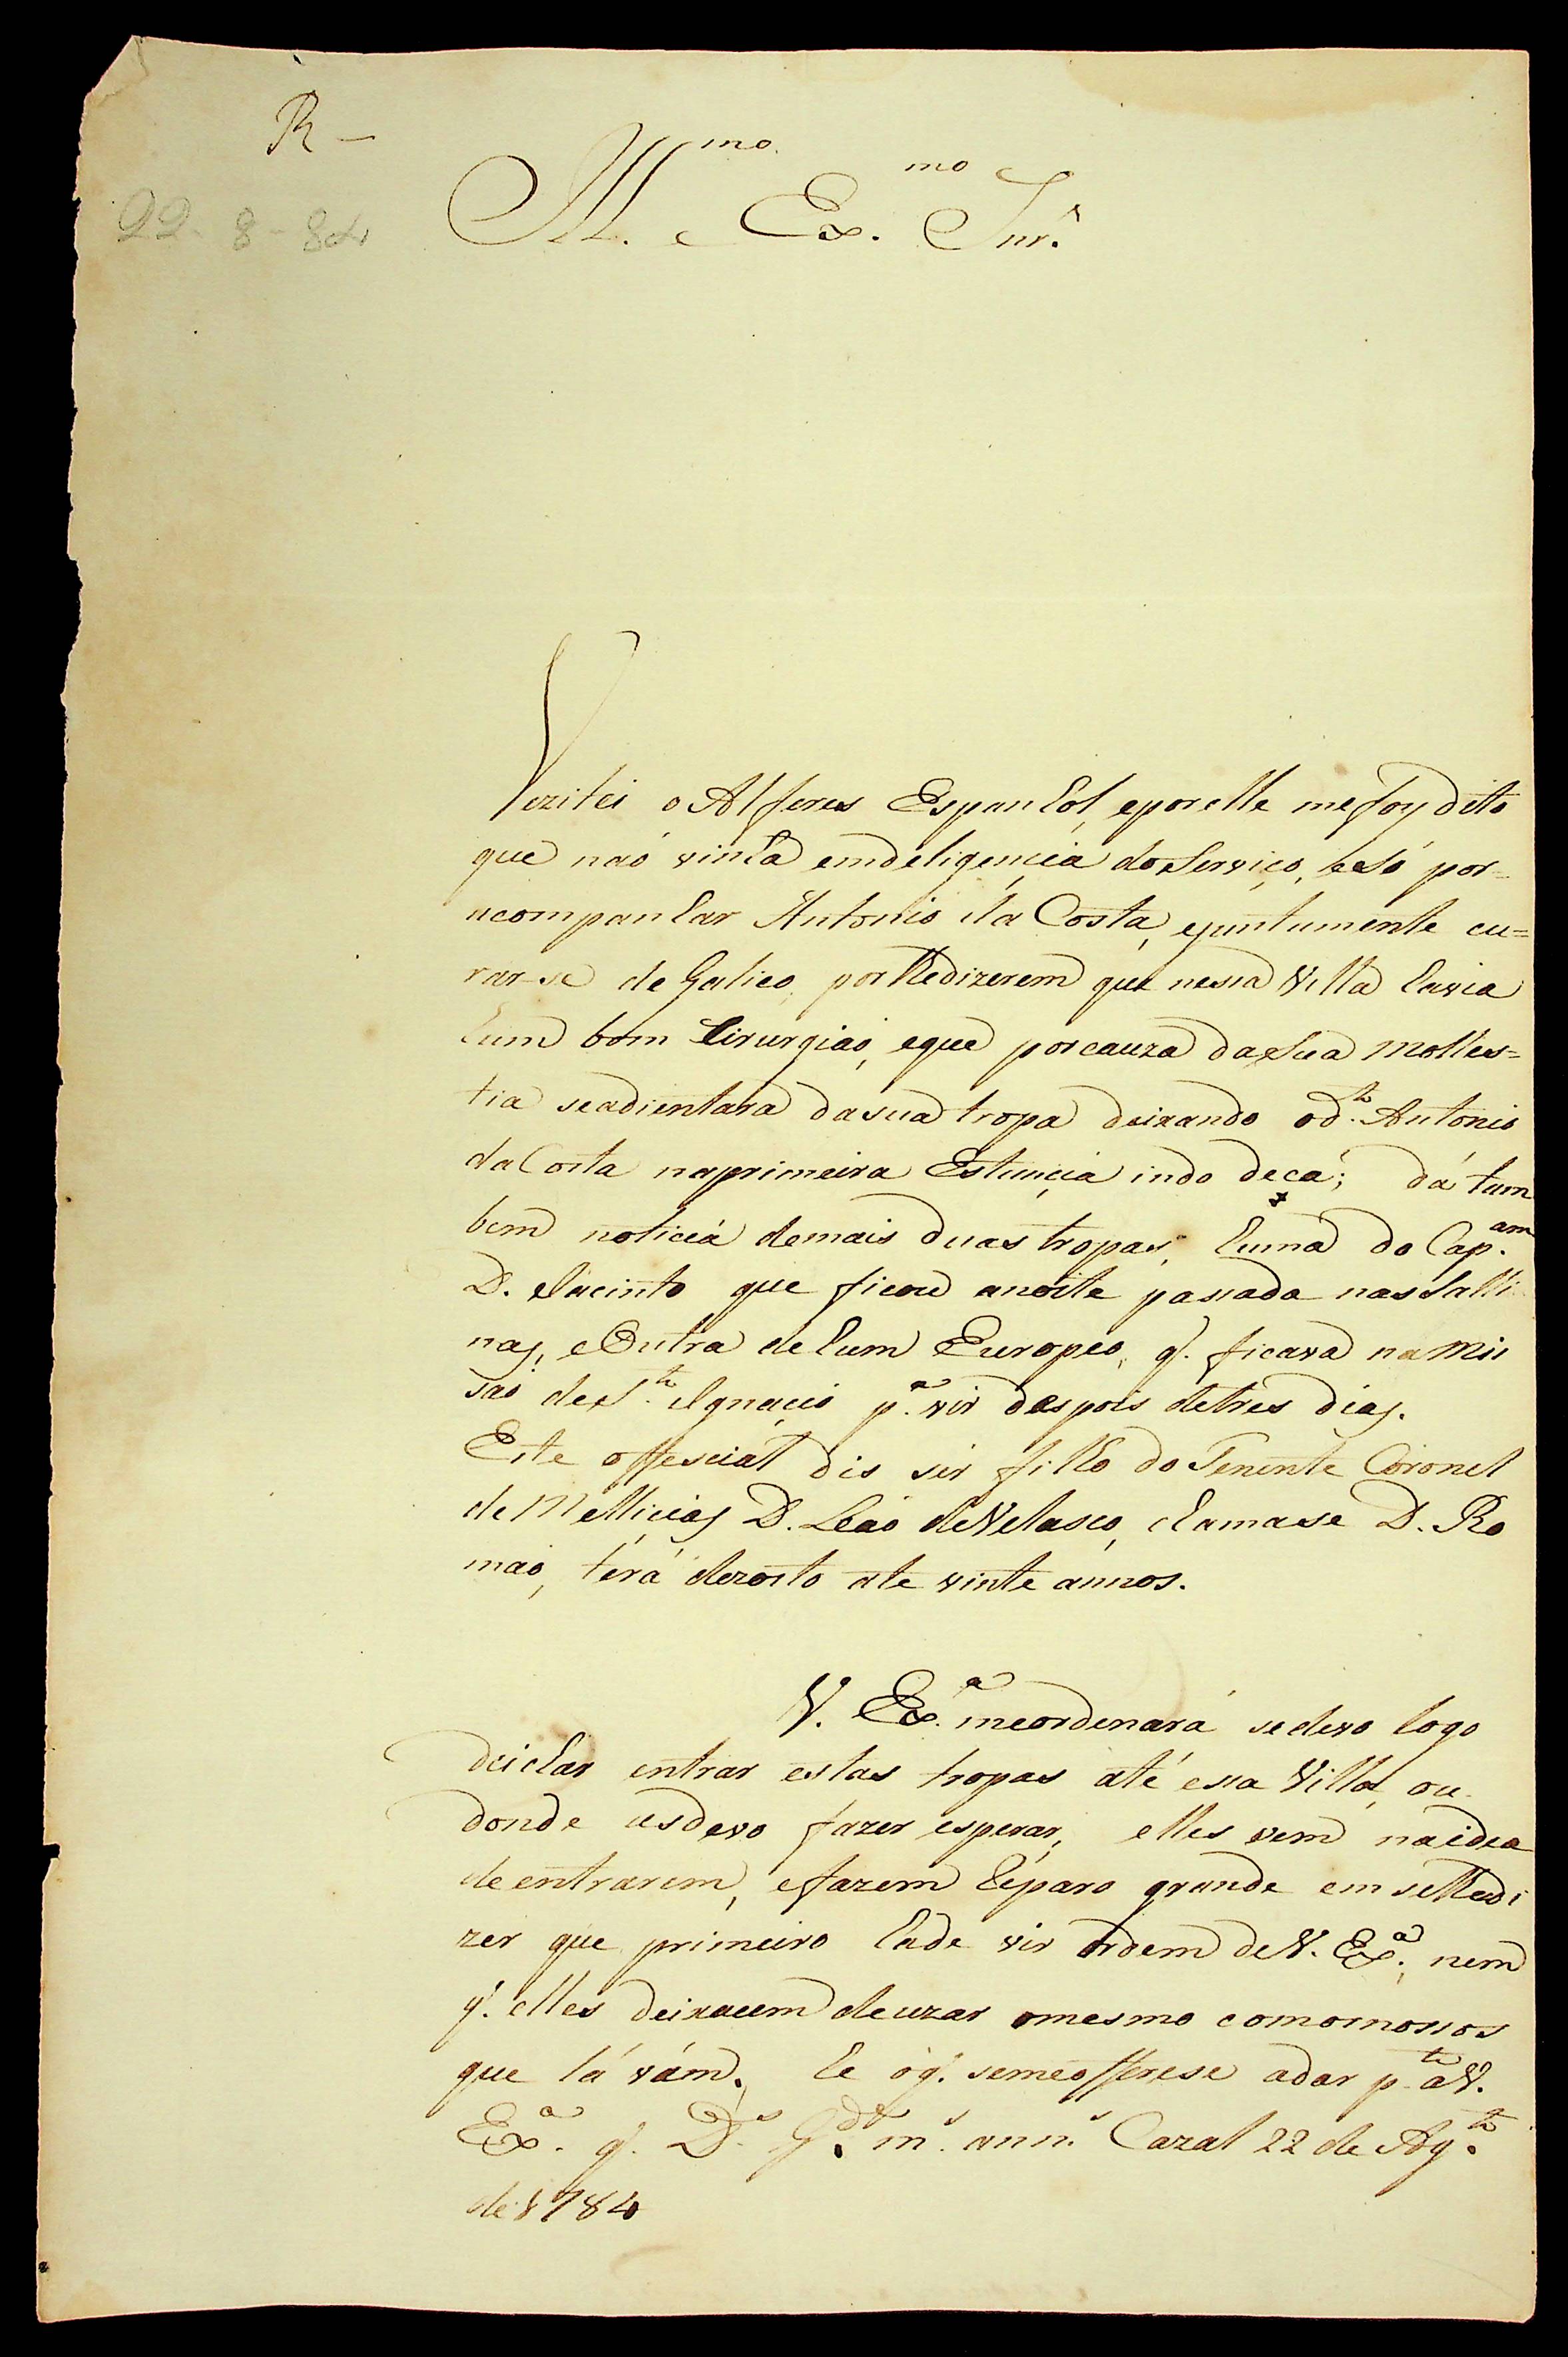 R –
22-8-84
Ill.mo e Ex.mo Snr.
Vezitei o Alferes Espanhol, eporelle mefoy dito
que naó vinha emdeligencia doServiço, esó por=
acompanhar Antonio da Costa, ejuntamente cu=
rar-se de Galico, porlhedizerem que nessa Villa havia
hum bom Cirurgiaó, eque porcauza daSua Molles=
tia seadientara dasua tropa deixando od.to Antonio
daCosta naprimeira Estancia indo deca; dá tam
bem noticia demais duas tropas, huma do Cap.am
D. Jacinto que ficou anoite passada nasSalli
nas, eOutra dehum Europeo, q. ficava naMis
saó deS.to Ignacio p.a vir despois detres dias.
Este offescial dis ser filho doTenente Coronel
deMellicias D. Leaó deVelasco, chamase D. Ro
maó, terá dezoito ate vinte annos.
V. Ex.a meordenará sedevo logo
deichar entrar estas tropas até essa Villa, ou
donde asdevo fazer esperar, elles vem naidea
deentrarem, efazem Réparo grande em selhedi
zer que primeiro hade vir ordem deV. Ex.a, nem
q. elles deixacem deuzar omesmo comosnossos
que lá vám. He oq. semeofferese adar p.te aV.
Ex.a q. D.s G.de m.s ann.s Cazal 22 de Ag.to
de1784